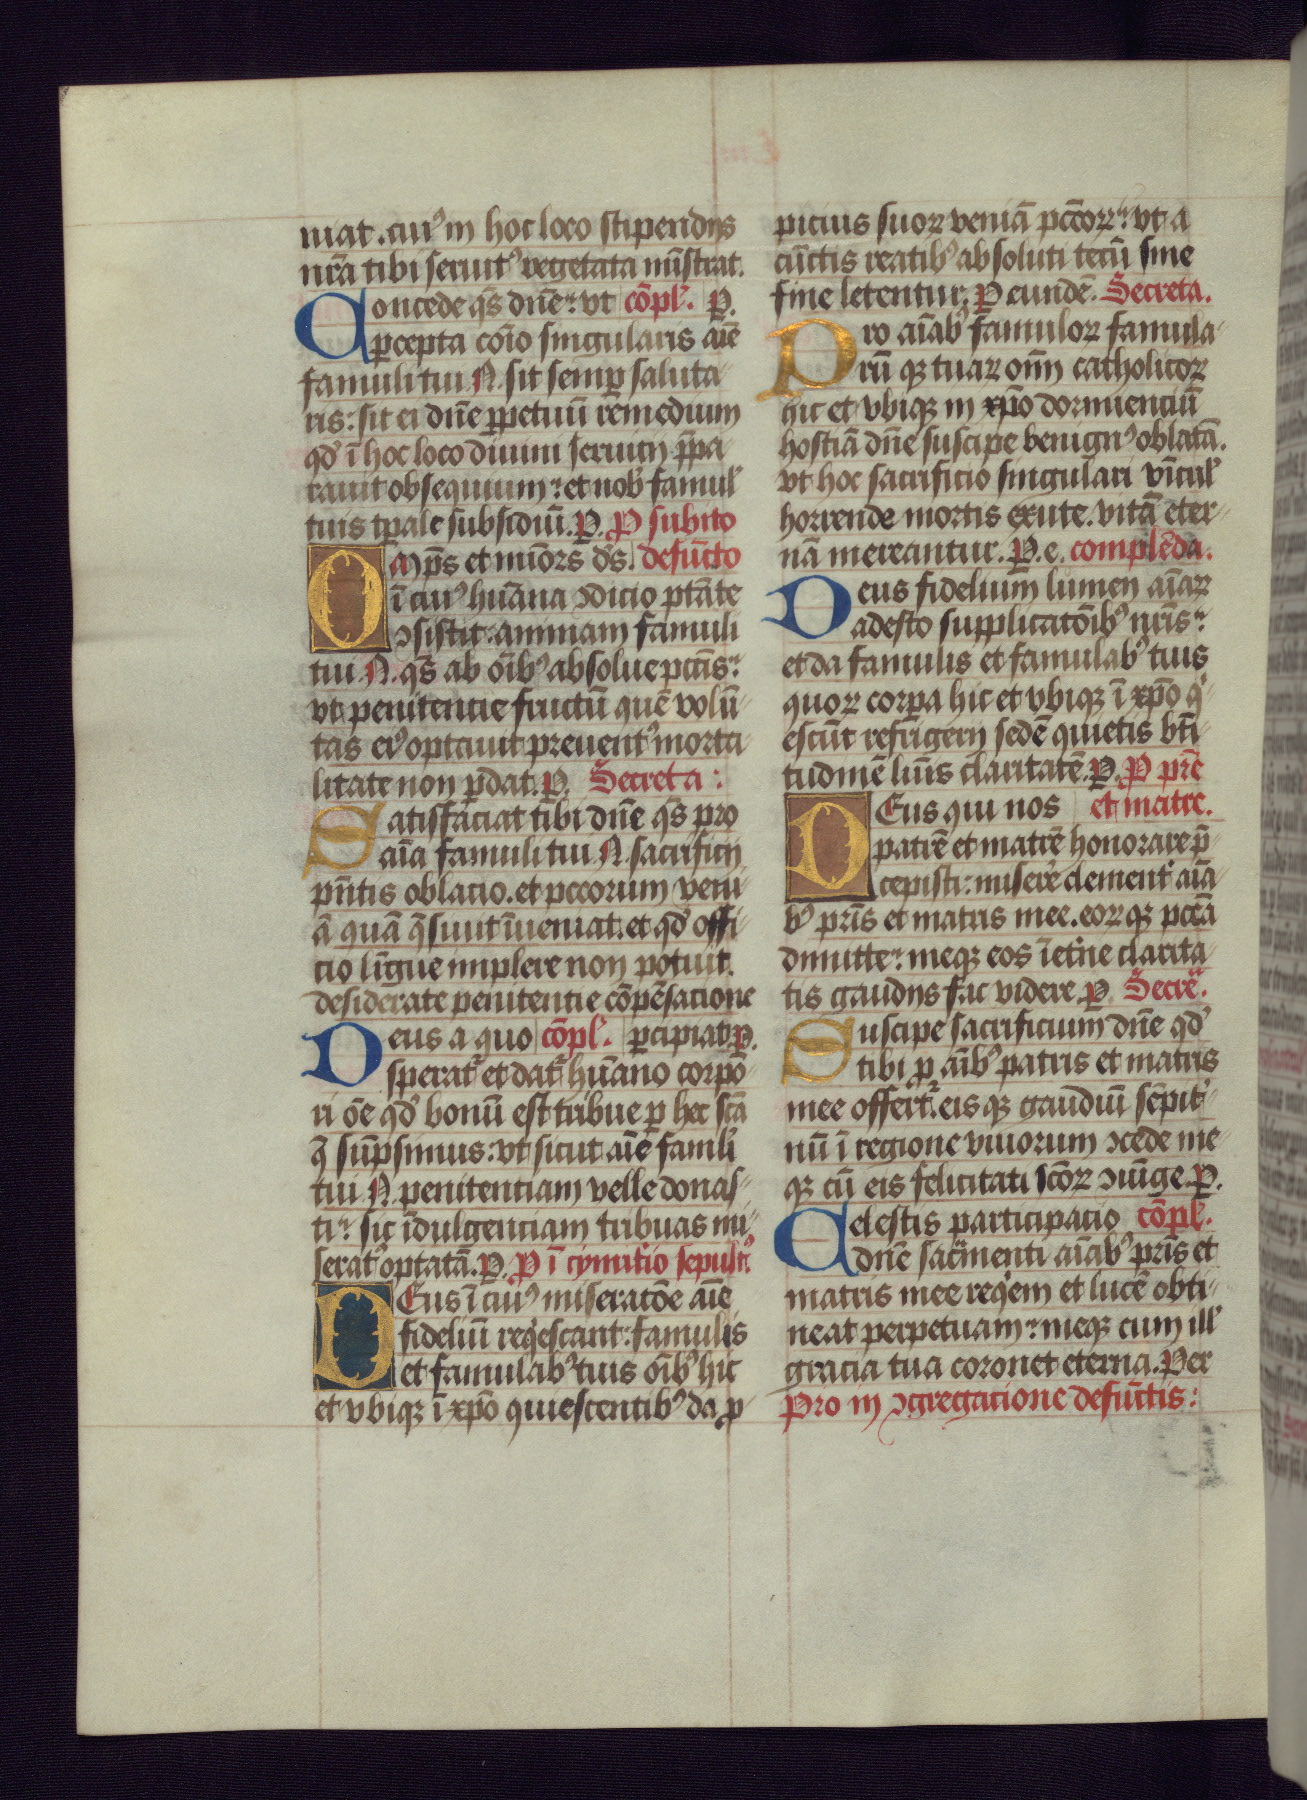 niat. cui⁹ in hoc loco stipendijs
nr̄a tibi seruit⁹ vegetata mīstrat.
Concede q̄s dn̄e: vt cōpl'. P.
ꝑcepta cōīo singularis aīe
famuli tui N. sit semꝑ saluta
ris: sit ei dn̄e ꝑpetuū remedium
qd̕ ī hoc loco diuini seruicij p̄pa
rauit obsequium: et nob̕ famul'
tuis tꝑale subsidiū. P. P subito
Omps̄ et mīors ds̄. defūcto
ī cui⁹ hūana ↄdicio ptāte
ↄsistit: animam famuli
tui N. q̄s ab oīb⁹ absolue pctīs:
vt penitentie fructū quē volū
tas ei⁹ optauit preuent⁹ morta
litate non ꝑdat. P. Secreta:
Satisfaciat tibi dn̄e q̄s pro
aīa famuli tui N. sacrificij
pn̄tis oblacio. et pccorum veni
ā quā q̄siuit īueniat. et qd̕ offi
cio lingue implere non potuit.
desiderate penitentie cōpēsacione
Deus a quo cōpl'. ꝑcipiat. P.
sperat̕ et dat̕ hūano corpo
ri oē qd̕ bonū est tribue ꝑ hec scā
q̄ sūpsimus: vt sicut aīe famli
tui N. penitentiam velle donas
ti: sic īdulgenciam tribuas mi
serat⁹ optatā. P. P ī cymit̕io sepult̕.
Deus ī cui⁹ miseratōe aīe
fidelium reqescant: famulis
et famulab⁹ tuis oīb⁹ hic
et vbiqꝫ ī xp̄o quiescentib⁹ da ꝓ
picius suoꝝ veniā pccoꝝ: vt a
cūctis reatib⁹ absoluti tecū sine
fine letentur. P eundē. Secreta.
Pro aīab⁹ famuloꝝ famula
rū qꝫ tuaꝝ oīm catholicoꝝ
hic et vbiqꝫ in xp̄o dormienciū
hostiā dn̄e suscipe benign⁹ oblatā.
vt hoc sacrificio singulari vīcul'
horrende mortis exute. vitā eter
nā mereantur. P. e. complēda.
Deus fidelium lumen aīaꝝ
adesto supplicatōib⁹ nr̄is:
et da famulis et famulab⁹ tuis
quoꝝ corꝑa hic et vbiqꝫ ī xp̄o q̕
escūt refrigerij sedē quietis bt̄i
tudinē lūis claritatē. P. P pr̄e
Deus qui nos et matre.
patrē et matrē honorare p̄
cepisti: miserē clement̕ aīa
b⁹ pr̄is et matris mee. eoꝝ qꝫ pccā
dimitte: meqꝫ eos ī et̕ne clarita
tis gaudijs fac videre. P Secre.
Suscipe sacrificium dn̄e qd̕
tibi ꝓ aīb⁹ patris et matris
mee offert̕. eis qꝫ gaudiū sēpit̕
nū ī regione viuorum ↄcede me
qꝫ cū eis felicitati sc̄oꝝ ↄiūge. P.
Celestis participacio cōpl'.
dn̄e sac̄menti aīab⁹ pr̄is et
matris mee reqem et lucē obti
neat perpetuam: meqꝫ cum ill'
gracia tua coronet eterna. Per
Pro in ↄgregacione defūctis: